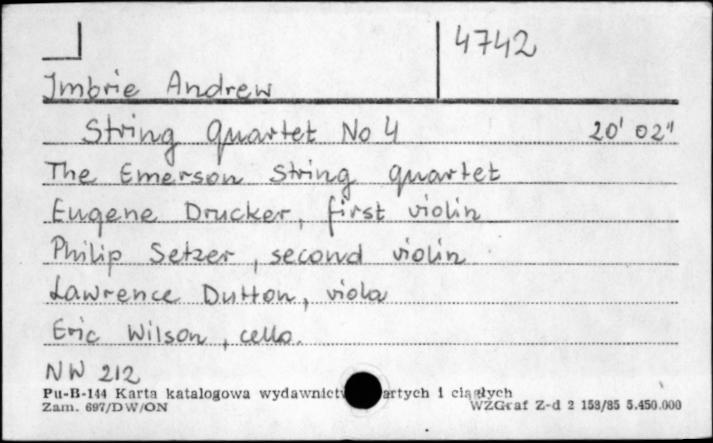 4742
Imbrie Andrew
String Quartet No 4 20' 02"
The Emerson String Quartet
Eugene Drucker, first violin
Philip Setzer, second violin
Lawrence Dutton, viola
Eric Wilson, cello.
NW 212
Pu-B-144 Karta katalogowa wydawnict artych i ciągłych
Zam. 697/DW/ON WZGraf Z-d 2 158/85 5.450.000